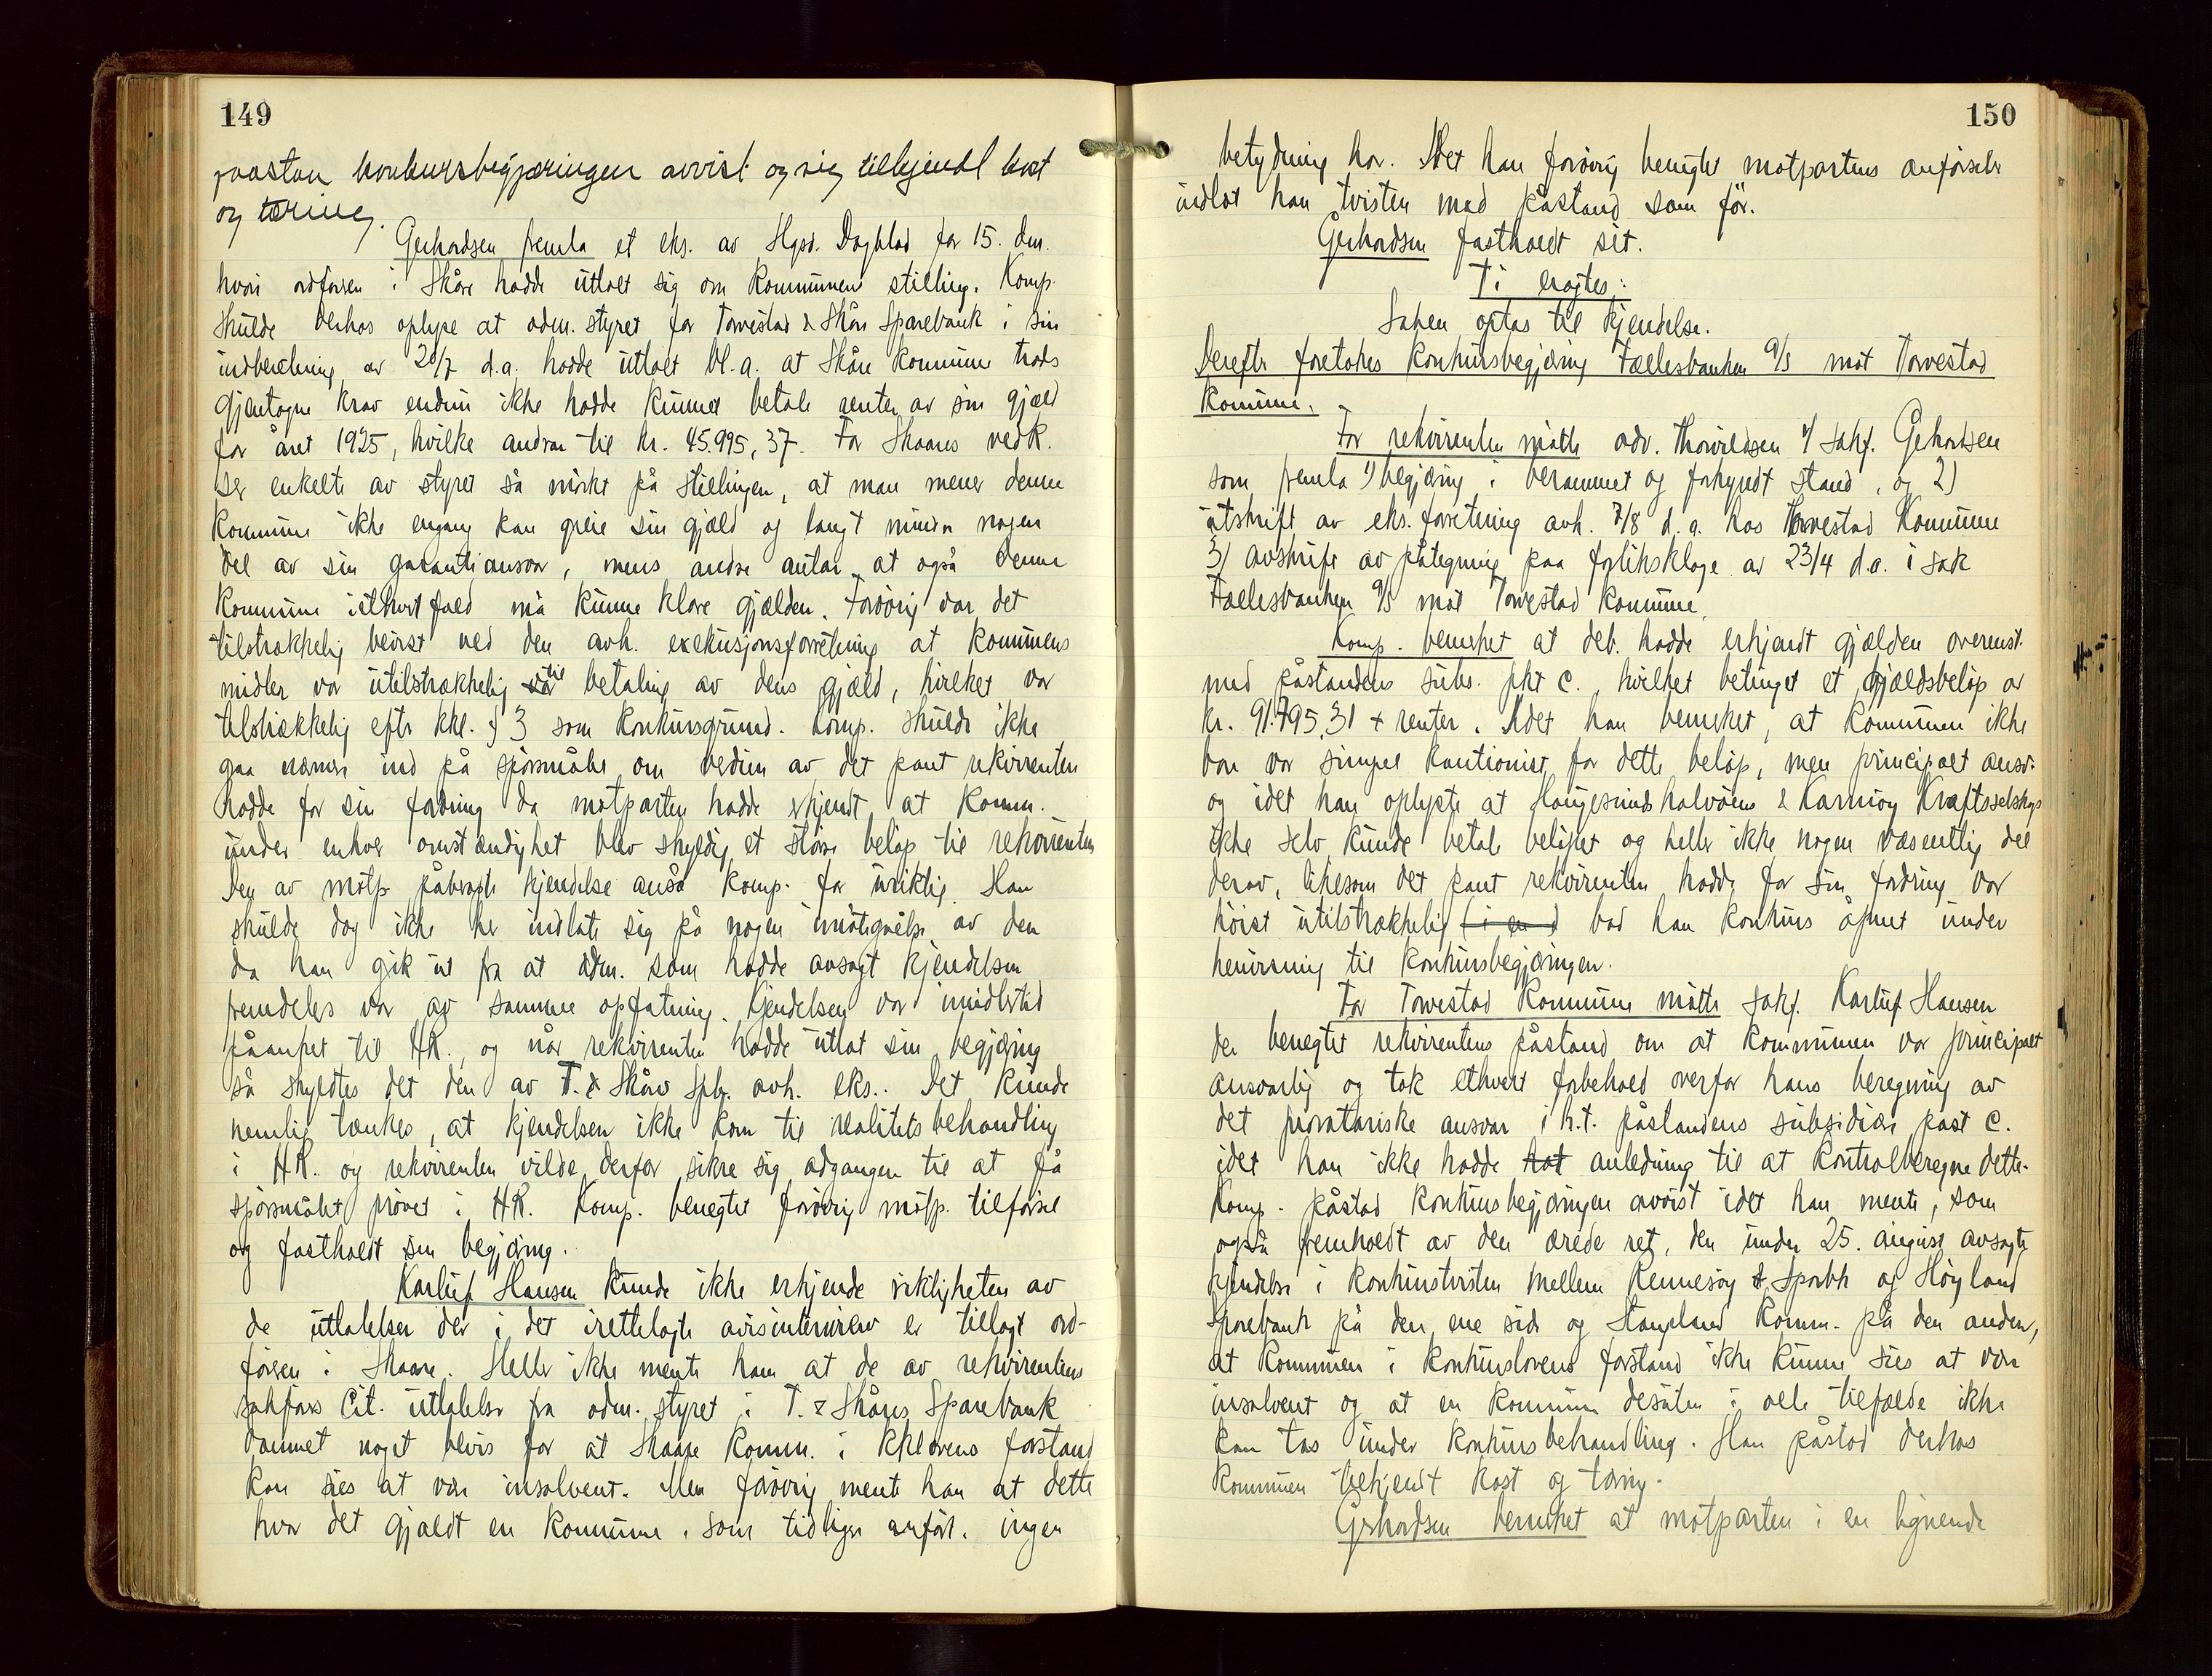 149
paastan konkursbegjæringen avvist og sig tilkjendt kost
og tæring.
Gerhardsen fremla et eks. av Hgsd. Dagblad for 15. dm.
hvori ordføren i Skåre hadde uttalt sig om kommunens stilling. Komp.
skulde derhos oplyse at adm. styret for Torvestad & Skåre Sparebank i sin
indberetning av 20/7 d.a. hadde uttalt bl.a. at Skåre kommune trods
gjentagne krav endnu ikke hadde kunnet betale renter av sin gjæld
for året 1925, hvilke andrar til kr. 45.995,37. For Skaares vedk.
ser enkelte av styret så mørkt på stillingen, at man mener denne
kommune ikke engang kan greie sin gjæld og langt mindre nogen
del av sin garantiansvar, mens andre antar at også denne
kommune ialhvert fald må kunne klare gjælden. Forøvrig var det
tilstrækkelig bevist ved den avh. exekusjonsforretning at kommunens
midler var utilstrækkelig til betaling av dens gjæld, hvilket var
tilstrækkelig efter kkl. § 3 som konkursgrund. Komp. skulde ikke
gaa nærmere ind på spørsmålet om verdien av det pant rekvirenten
hadde for sin fordring da motparten hadde erkjendt at komm.
under enhver omstændighet blev skyldig et større beløp til rekvirenten
Den av motp. påberopte kjendelse anså komp. for uriktig. Han
skulde dog ikke her indlate sig på nogen imøtegåelse av den
da han gik ut fra at adm. som hadde avsagt kjendelsen
fremdeles var av samme opfatning. Kjendelsen var imidlertid
påanket til HR., og når rekvirenten hadde uttat sin begjæring
så skyldtes det den av T. & Skåre Spb. avh. eks.. Det kunde
nemlig tænkes, at kjendelsen ikke kom til realitetsbehandling
i HR. og rekvirenten vilde derfor sikre sig adgangen til at få
spørsmålet prøvet i HR. Komp. benegtet forøvrig motp. tilførsel
og fastholdt sin begjæring.
Karluf Hansen kunde ikke erkjende riktigheten av
de uttalelser der i det irettelagte avisinterview er tillagt ord-
føreren i Skaare. Heller ikke mente han at de av rekvirentens
sakførers cit. uttalelser fra adm. styret i T. & Skåres Sparebank
dannet noget bevis for at Skaare komm. i kklovens forstand
kan sies at være insolvent. Men forøvrig mente han at dette
hvor det gjaldt en kommune, som tidligere anført, ingen
150
betydning har. Idet han forøvrig benegtet motpartens anførsler
indlot han tvisten med påstand som før.
Gerhardsen fastholdt sit.
Ti eragtes:
Saken optas til kjendelse.
Derefter foretokes konkursbegjæring Fællesbanken A/S mot Torvestad
kommune.
For rekvirenten møtte adv. Thorvildsen v/ sakf. Gerhardsen
som fremla 1) begjæring i berammet og forkyndt stand, og 2)
utskrift av eks. forretning avh. 7/8 d.a. hos Torvestad Kommune
3) avskrift av påtegning paa forliksklage av 23/4 d.a. i sak
Fællesbanken A/S mot Torvestad kommune.
Komp. bemerket at deb. hadde erkjendt gjælden overenst.
med påstandens subs. pkt c., hvilket betinget et gjældsbeløp av
kr. 91.795,31 + renter. Idet han bemerket, at kommunen ikke
bare var simpel kautionist for dette beløp, men principalt ansv.
og idet han oplyste at Haugesundshalvøens & Karmøy Kraftselskap
ikke selv kunde betale beløpet og heller ikke nogen væsentlig del
derav, likesom det pant rekvirenten hadde for sin fordring var
høist utilstrækkelig bad han konkurs åpnet under
henvisning til konkursbegjæringen.
For Torvestad Kommune møtte sakf. Karluf Hansen
der benegtet rekvirentens påstand om at kommunen var principalt
ansvarlig og tok ethvert forbehold overfor hans beregning av
det proratariske ansvar i h.t. påstandens subsidiære post c.
idet han ikke hadde hat anledning til at kontrolberegne dette.
Komp. påstod konkursbegjæringen avvist idet han mente, som
også fremholdt av den ærede ret, den under 25. august avsagte
kjendelse i konkurstvisten mellem Rennesøy Sparbk og Høyland
Sparebank på den ene side og Stangeland Komm. på den anden,
at kommunen i konkurslovens forstand ikke kunne sies at være
insolvent og at en kommune desuten i alle tilfælde ikke
kan tas under konkursbehandling. Han påstod derhos
kommunen tilkjendt kost og tæring.
Gerhardsen bemerket at motparten i en lignende